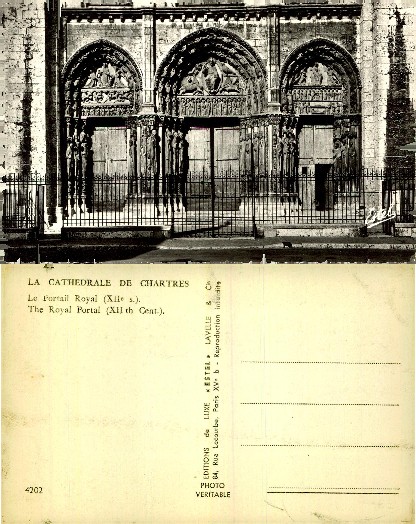 Estel
LA CATHEDRALE DE CHARTRES
Le Portail Royal (XIIe s.).
The Royal Portal (XII th Cent.).
EDITIONS de LUXE «ESTEL» LAVELLE & Cie
84, Rue Lecourbe, Paris XVe b - Reproduction interdite
PHOTO
VERITABLE
4202